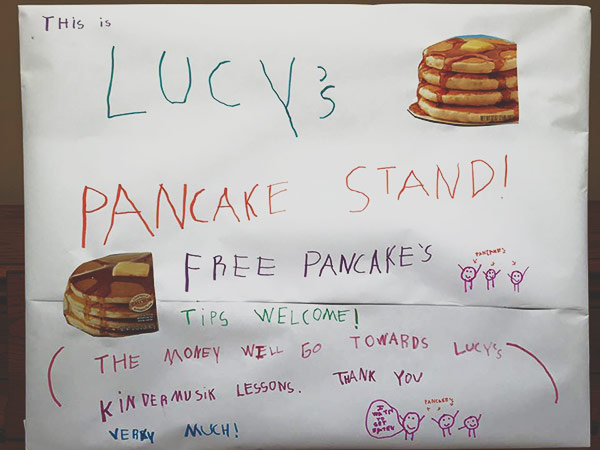 THiS is
LUCY's
PANCAKE STAND!
FREE PANCAKE'S
PANCAKE'S
TiPS WELCOME!
(THE MONEY WILL GO TOWARDS LUCY'S
KiNDERMUSiK LESSONS. THANK YOU
VERRY MUCH!)
PANCAKE'S
I WANT TO GET EATEN